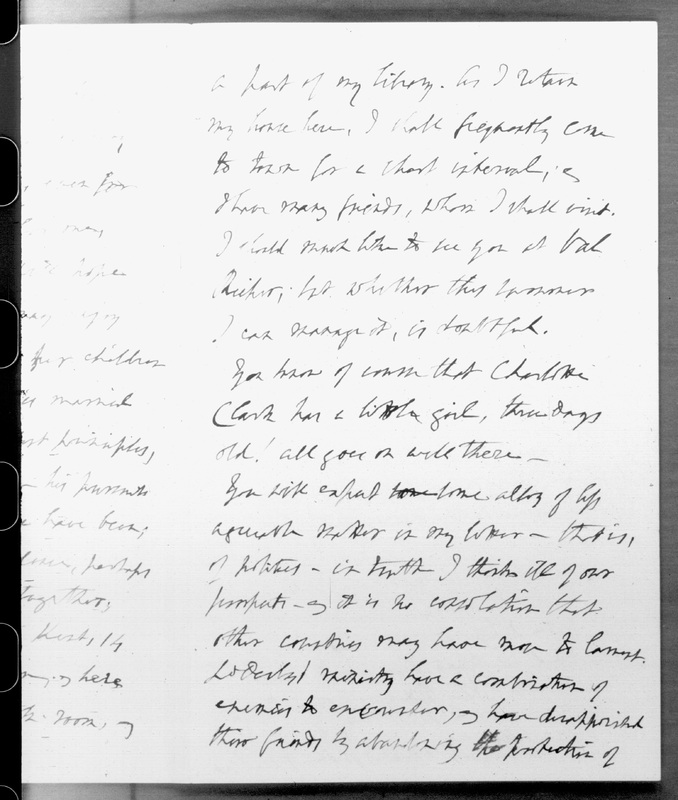 even for
hope
enjoy
for children
married
principles,
his pursuits
have been;
perhaps
together;
Kent, 14
here
room, &
a part of my library. As I retain
my house here, I shall frequently come
to town for a short interval; &
I have many friends, whom I shall visit.
I should much like to see you at Val
Richer; but whether this summer
I can manage it, is doubtful.
You know of course that Charlotte
Clark has a little girl, three days
old! all goes on well there –
You will expect some alloy of less
agreeable matter in my letter – that is,
of politics – in truth I think ill of our
prospects – & it is no consolation that
other countries may have more to lament.
Ld Derby's ministry have a combination of
enemies to encounter, & have disappointed
their friends by abandoning the protection of